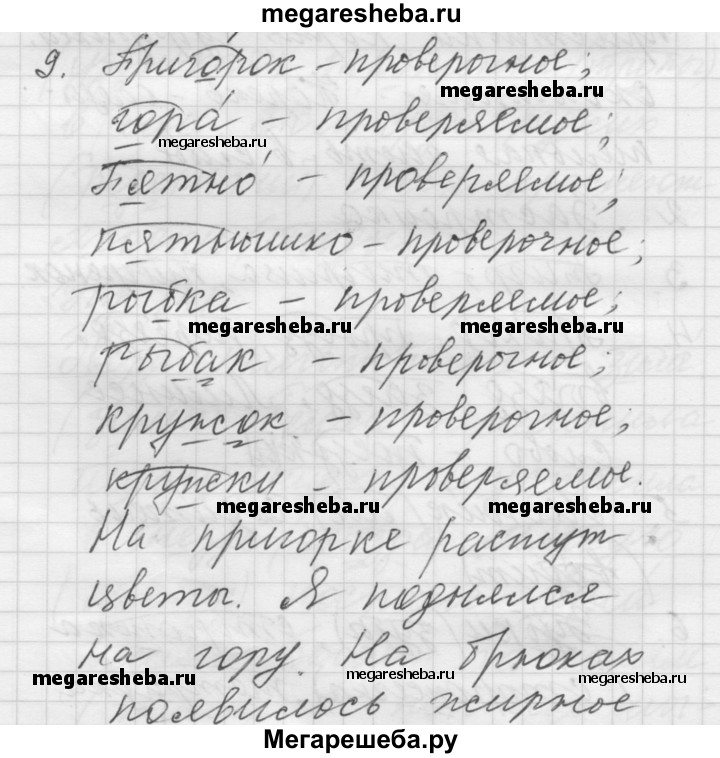 megaresheba.ru
9. Приго́рок – проверочное;
megaresheba.ru
гора́ – проверяемое;
megaresheba.ru
Пятно́ – проверяемое;
пятнышко – проверочное;
рыбка – проверяемое;
megaresheba.ru megaresheba.ru
рыбак – проверочное;
кружок – проверочное;
кружки – проверяемое.
megaresheba.ru megaresheba.ru
На пригорке растут
цветы. Я поднялся
на гору. На брюках
megaresheba.ru megaresheba.ru
появилось жирное
Мегарешеба.ру